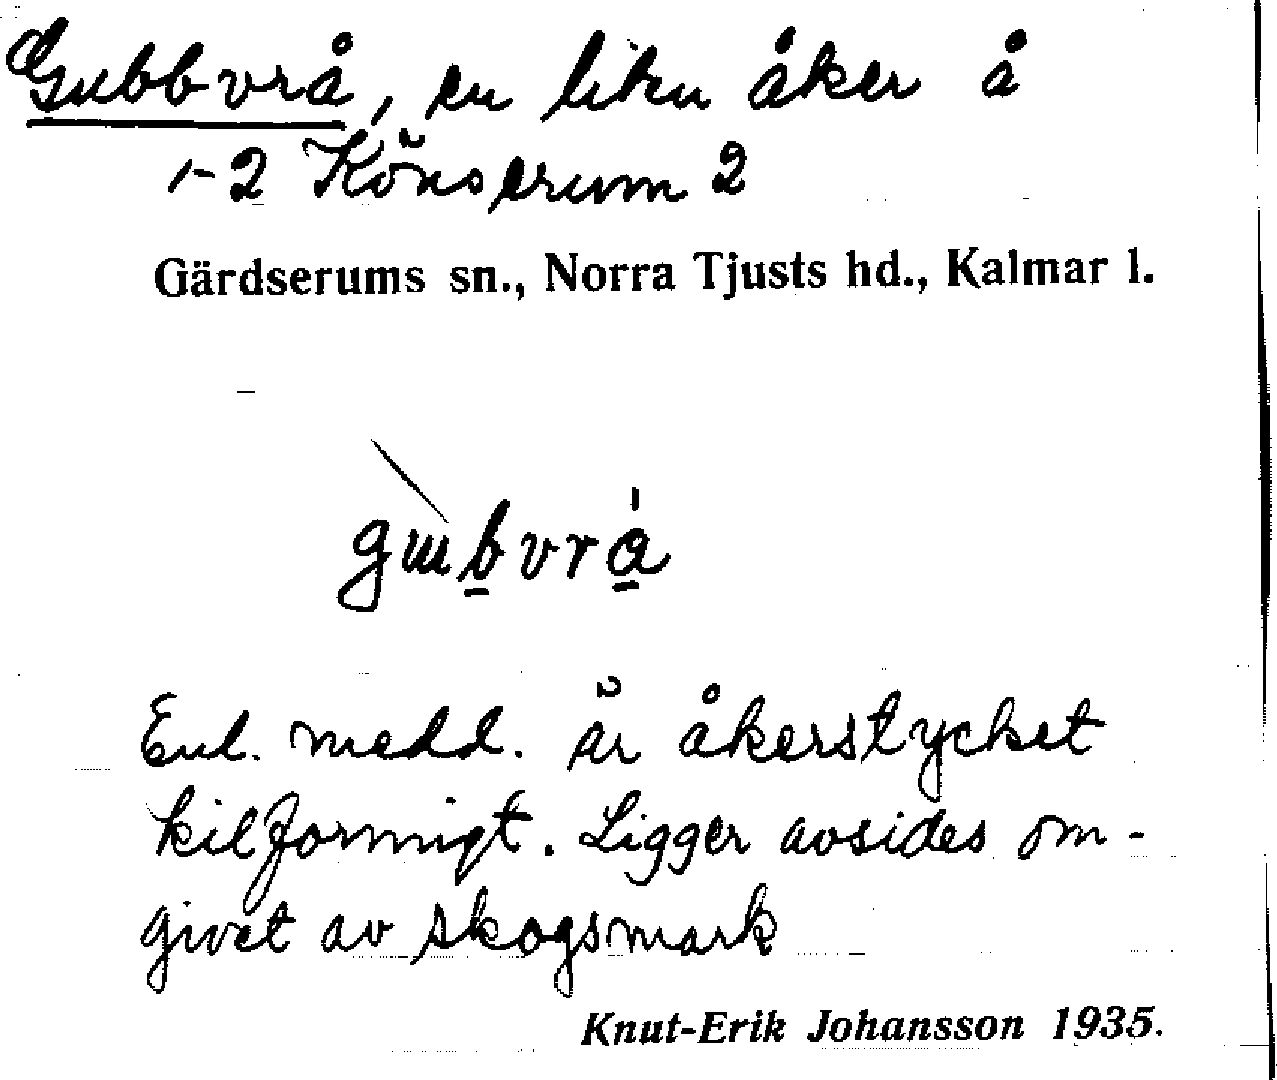 Gubbvrå, en liten åker å
1-2 Könserum 2
Gärdserums sn., Norra Tjusts hd., Kalmar l.
Enl. medd. är åkerstycket
kilformigt. Ligger avsides om-
givet av skogsmark
Knut-Erik Johansson 1935.